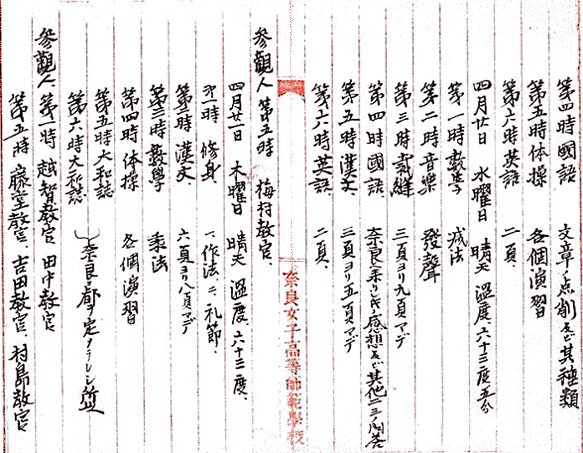 第四時 國語 文章ノ点削及ビ其種類
第五時 体操 各個演習
第六時 英語 二頁、
四月廿日 水曜日 晴天 温度、六十三度五分
第一時 數學 减法
第二時 音樂 發聲
第三時 裁縫 三頁ヨリ九頁マデ
第四時 國語 奈良ニ来リシ時ノ感想及ビ其他二三ノ問答
第五時 漢文、 三頁ヨリ五頁マデ
第六時 英語、 二頁、
參觀人 第五時 梅村教官、
奈良女子高等師範學校
四月廿一日 木曜日 晴天 温度、六十三度、
第一時 修身、 一、作法 二、礼節、
第二時 漢文、 六頁ヨリ八頁マデ
第三時 數學 乘法
第四時 体操 各個演習
第五時 大和誌
第六時 大和誌 奈良ニ都ヲ定メラレシ
參觀人、第一時 越智教官 田中教官
第五時 藤堂教官、吉田教官 村島教官